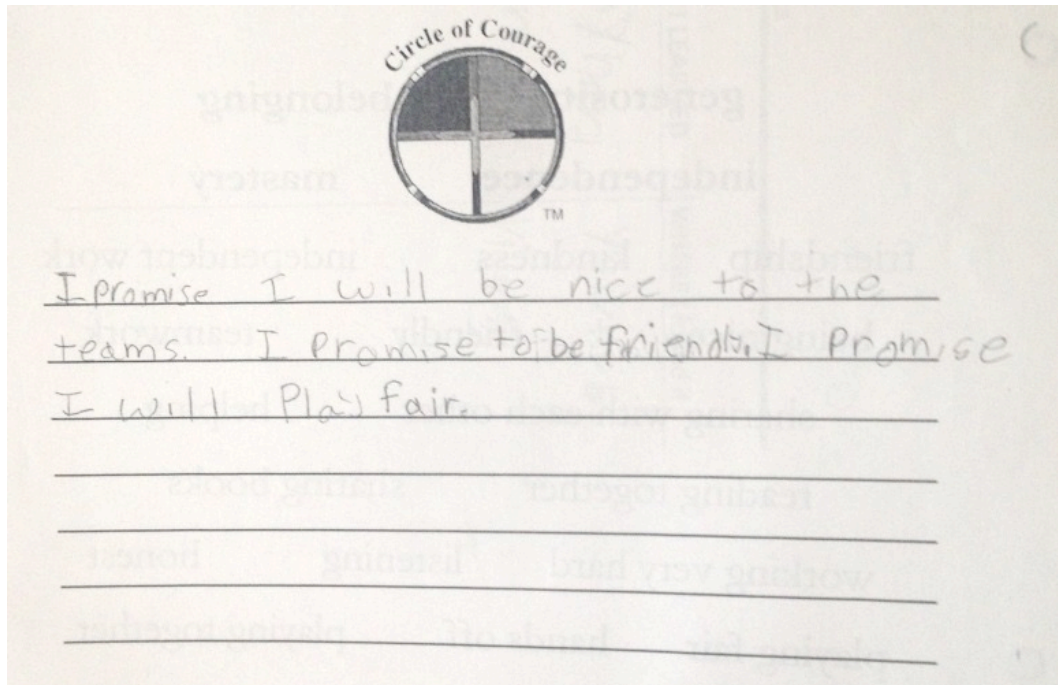 Circle of Courage
TM
I promise I will be nice to the
teams. I Promise to be friendly. I Promise
I will Play fair.